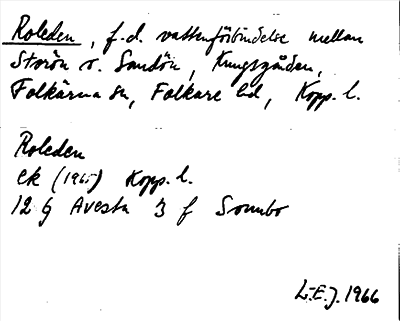 Roleden, f.d. vattenförbindelse mellan
Storön o. Sandön, Kungsgården,
Folkärna sn, Folkare hd, Kopp. l.
Roleden
ek (1965) Kopp. l.
12 G Avesta 3 f Sonnbo
L.E.J. 1966